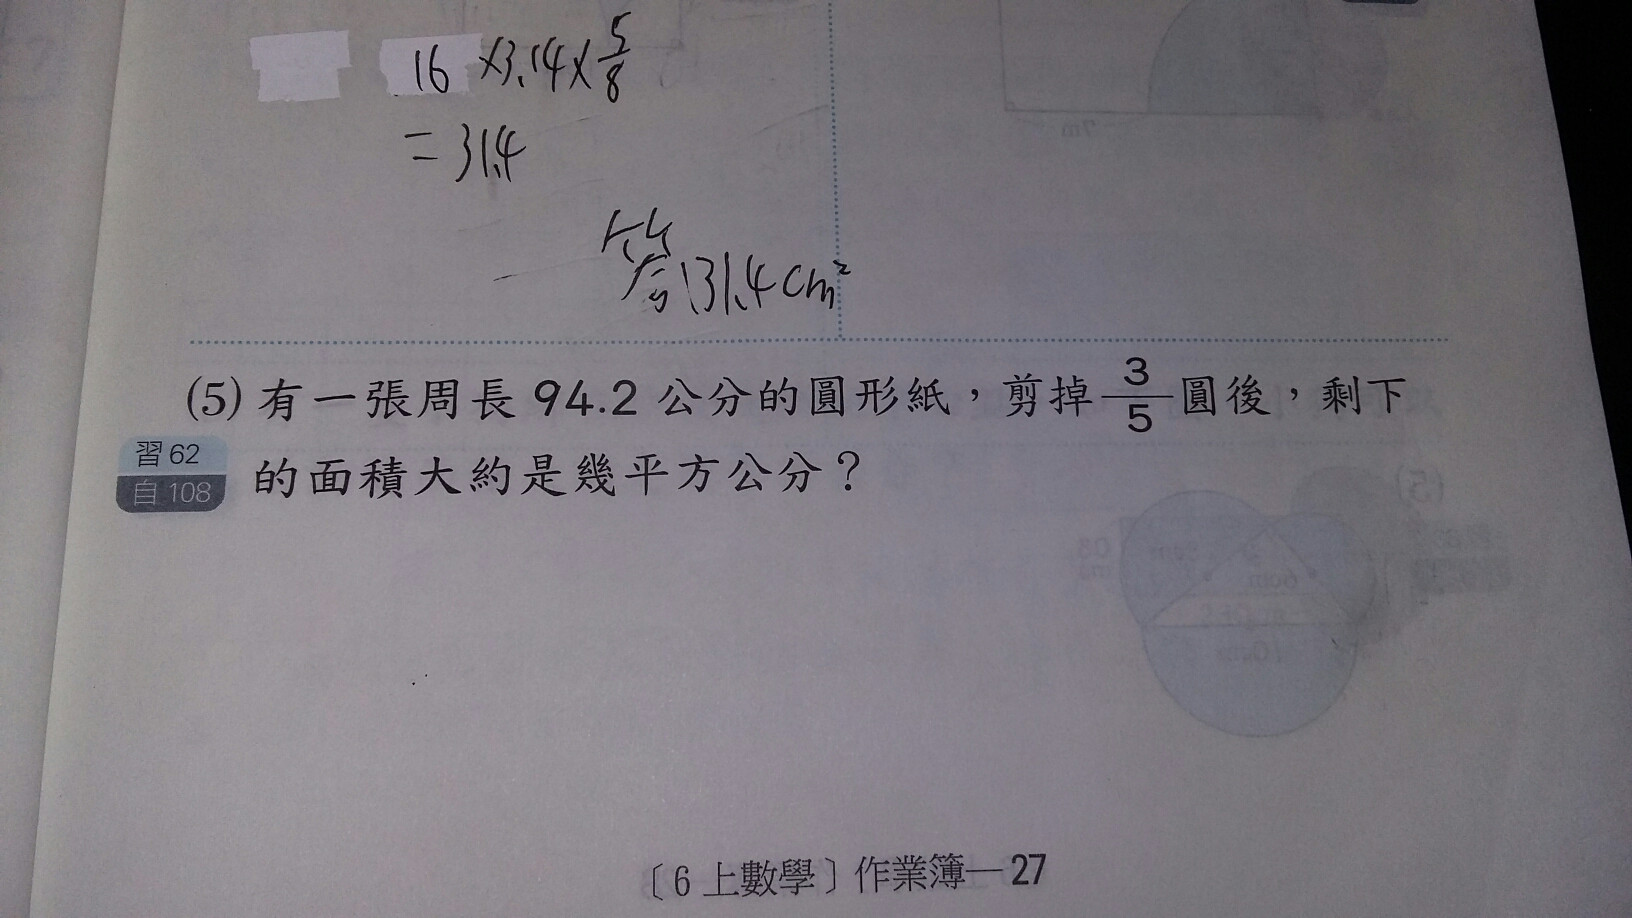 16 ×3.14×5/8
=31.4
答:31.4cm²
(5) 有一張周長 94.2 公分的圓形紙,剪掉3/5圓後,剩下
的面積大約是幾平方公分?
習 62
自 108
〔6 上數學〕作業簿—27